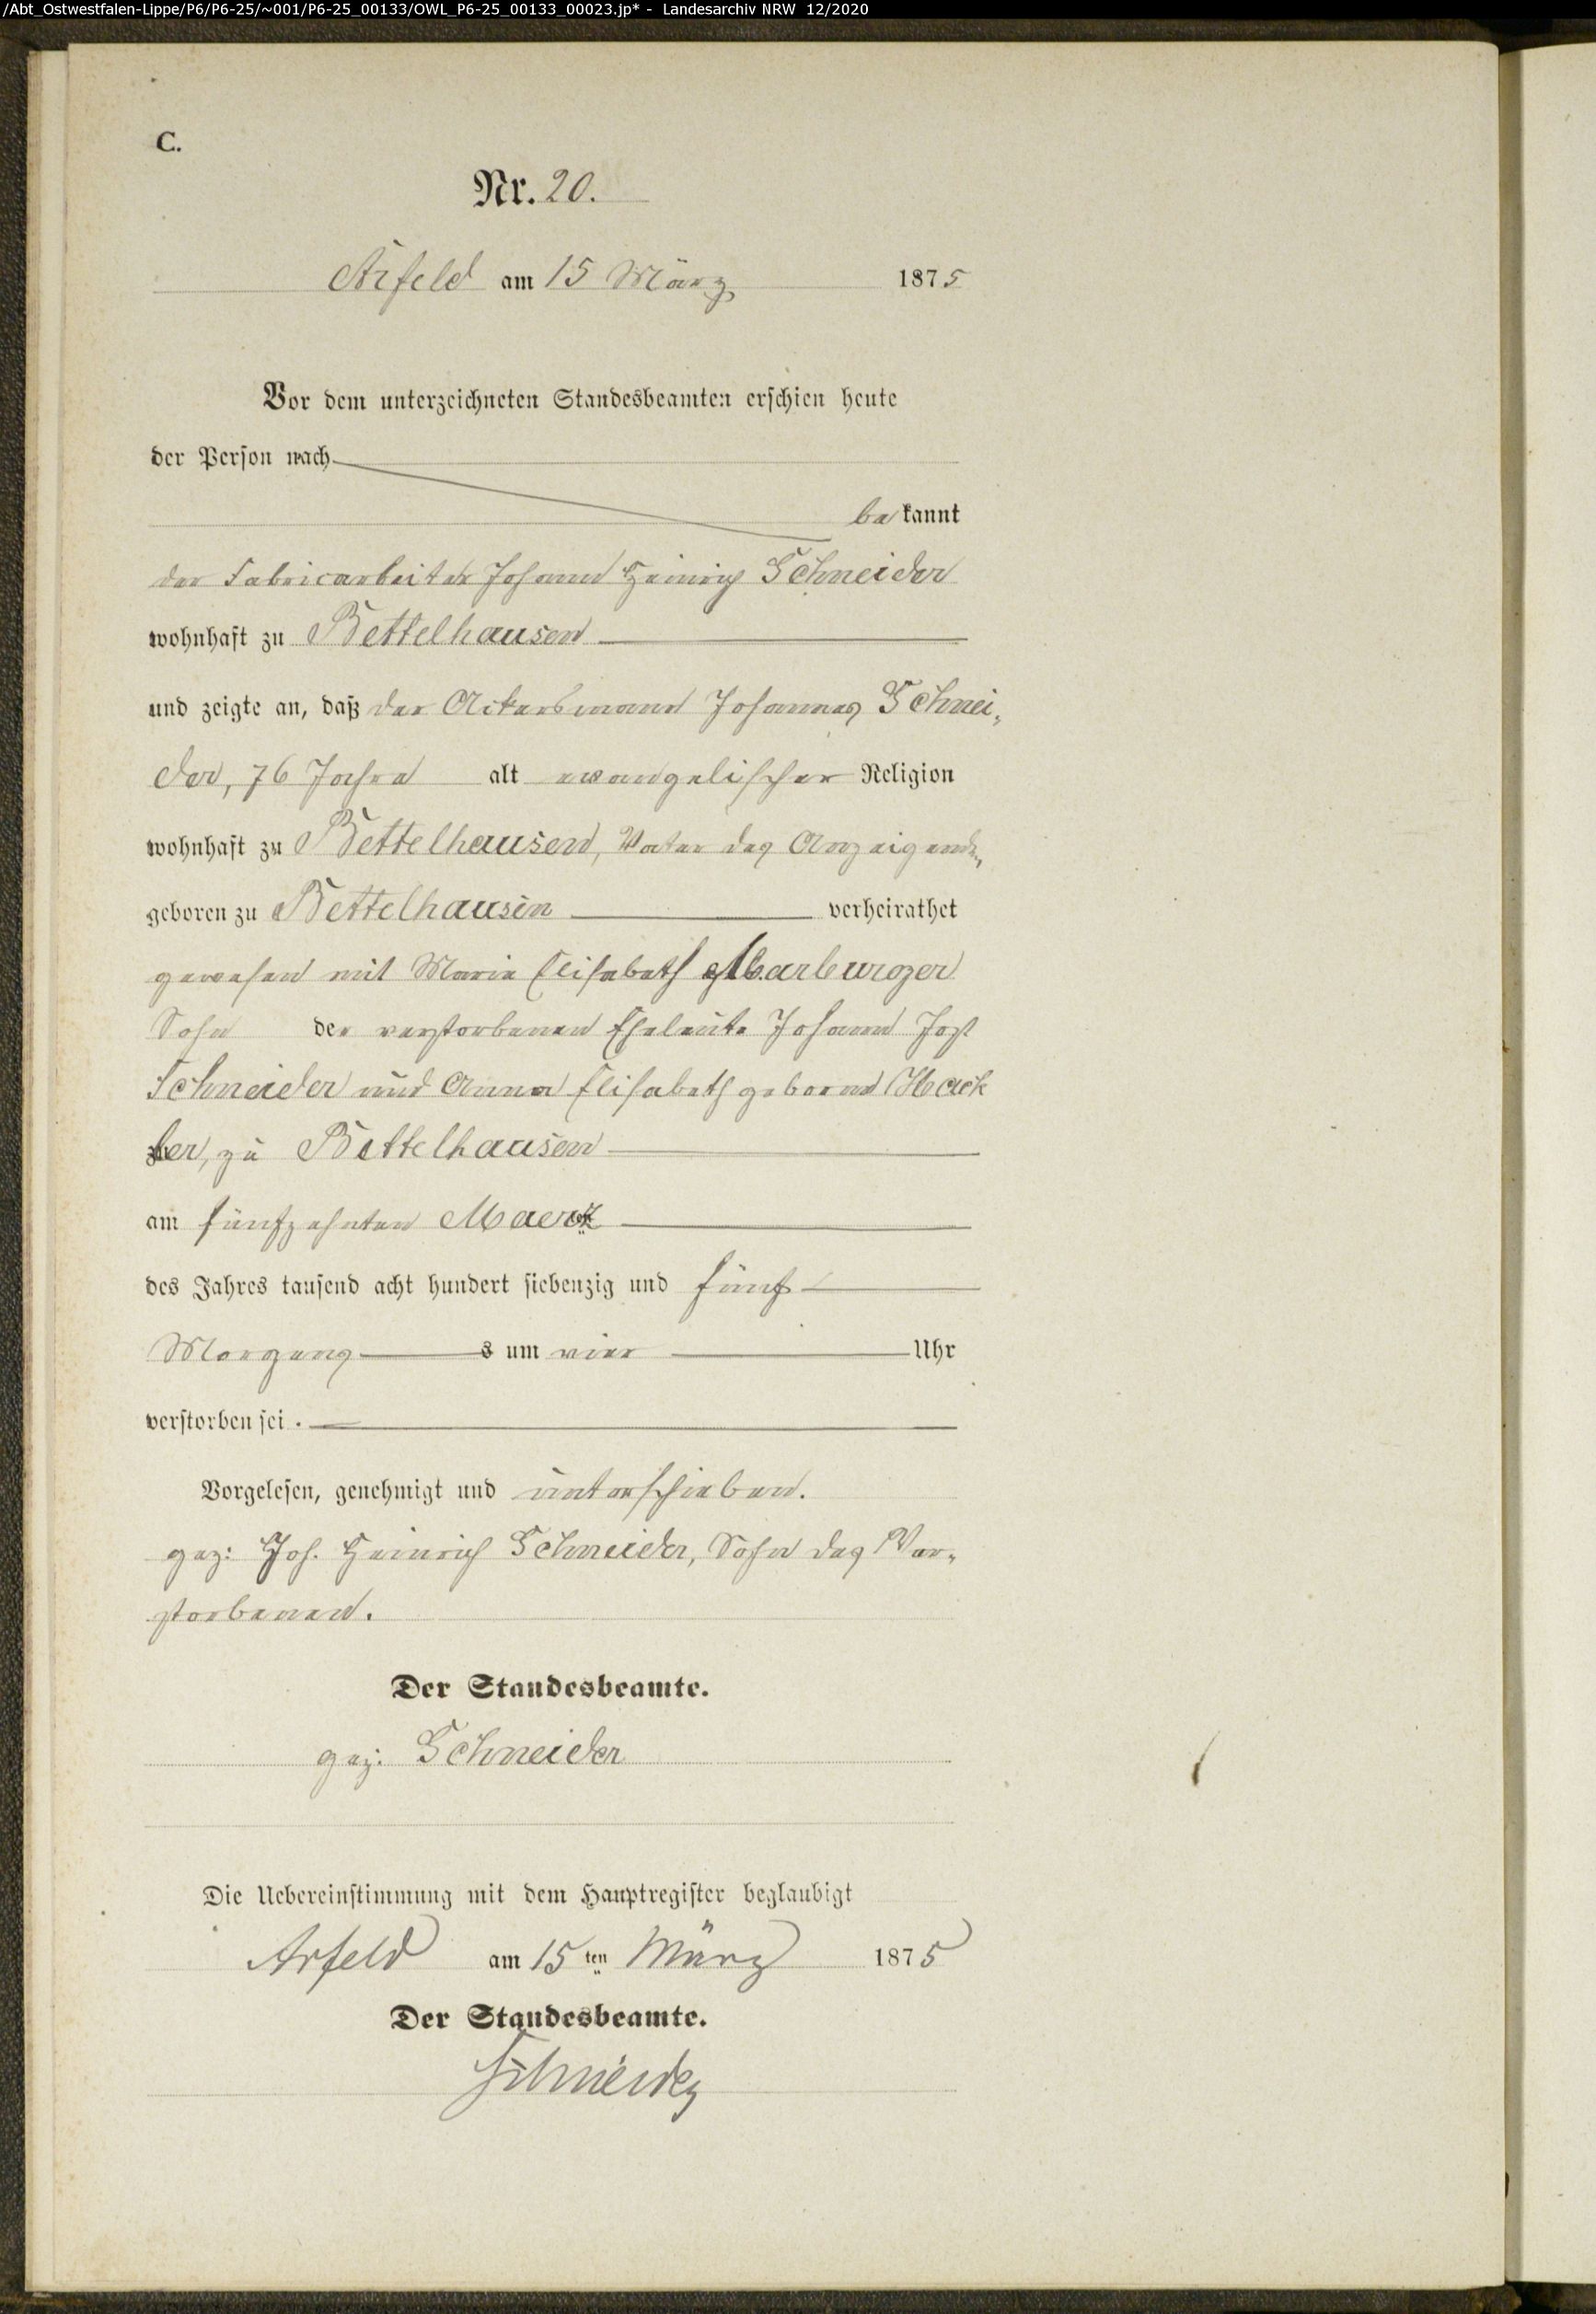 /Abt_Ostwestfalen-Lippe/P6/P6-25/~001/P6-25_00133/OWL_P6-25_00133_00023.jp* - Landesarchiv NRW 12/2020
C.
Nr. 20.
Arfeld am 15 März 1875
Vor dem unterzeichneten Standesbeamten erschien heute
der Person nach
bekannt
der Fabricarbeiter Johann Heinrich Schneider
wohnhaft zu Bettelhausen
und zeigte an, daß der Ackersmann Johannes Schnei-
der, 76 Jahre alt evangelischer Religion
wohnhaft zu Bettelhausen, Vater des Anzeigenden,
geboren zu Bettelhausen verheirathet
gewesen mit Marie Elisabeth Marburger
Sohn der verstorbenen Eheleute Johann Jost
Schneider und Anna Elisabeth geborne Hack
ler, zu Bettelhausen
am fünfzehnten Maerz
des Jahres tausend acht hundert siebenzig und fünf
Morgens um vier Uhr
verstorben sei.
Vorgelesen, genehmigt und unterschieben.
gez: Joh. Heinrich Schneider, Sohn des Ver-
storbenen.
Der Standesbeamte.
gez: Schneider
Die Uebereinstimmung mit dem Hauptregister beglaubigt
Arfeld am 15ten März 1875
Der Standesbeamte.
Schneider